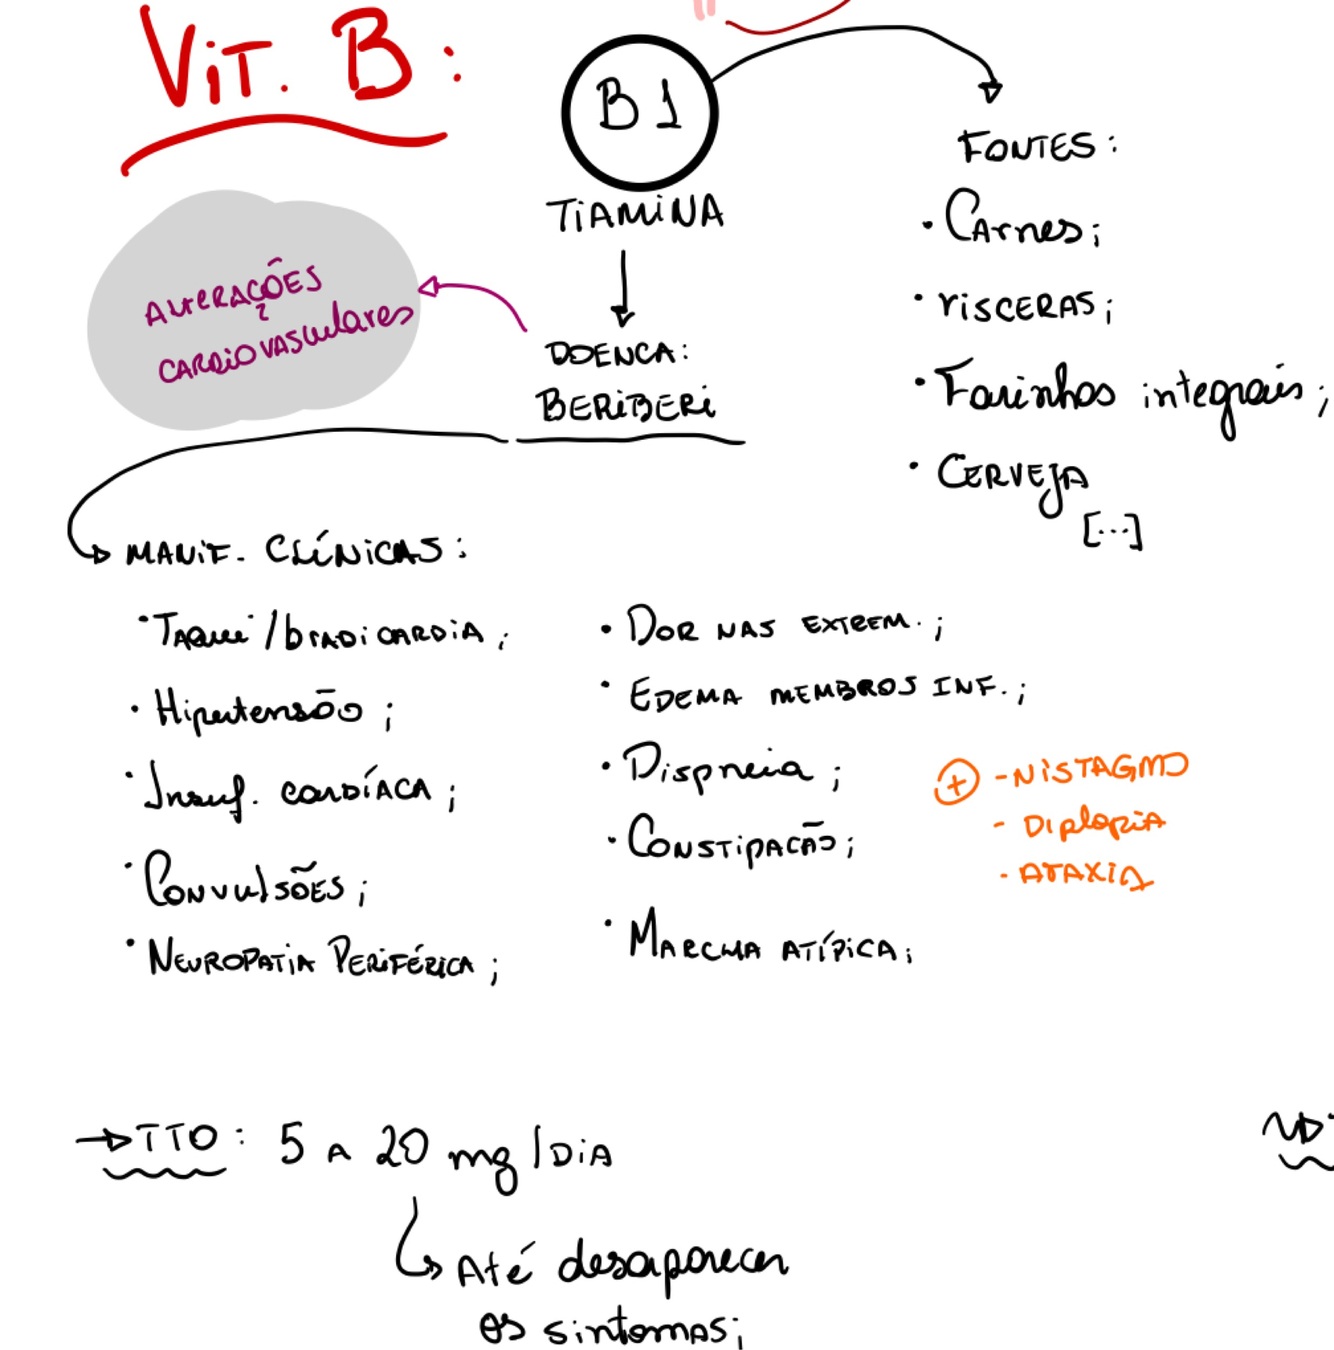 VIT. B:
B1
TIAMINA
DOENCA:
BERIBERI
ALTERAÇÕES
CARDIOVASculares
FONTES:
• CArnes;
• VISCERAS;
• Farinhas integrais;
• CERVEJA
[...]
MANIF. CLÍNICAS:
• TAQUI/bRADICARDIA;
• Hipertensão;
• Insuf. cardÍACA;
• CONVULSÕES;
• NEUROPATIA PERIFÉRICA;
• DOR NAS EXTREM.;
• EDEMA MEMBROS INF.;
• Dispneia;
• CONSTIPACÃO;
• MARCHA ATÍPICA;
+ - NISTAGMO
- DIPlopIA
- ATAXIA
→ TTO: 5 A 20 mg/DIA
Até desaparecer
os sintomas;